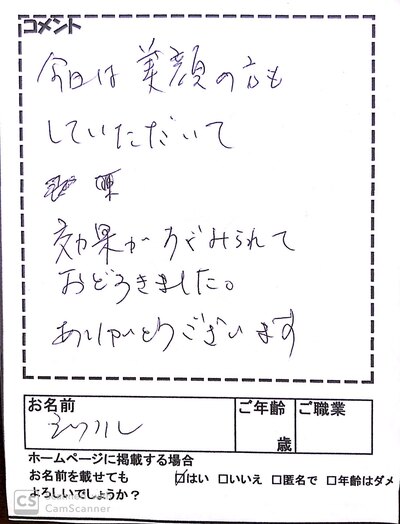 コメント
今日は美顔の方も
していただいて
効果が みられて
おどろきました。
ありがとうございます
お名前
ご年齢
ご職業
歳
ホームページに掲載する場合
お名前を載せても ☑はい □いいえ □匿名で □年齢はダメ
よろしいでしょうか?
CS
CamScanner